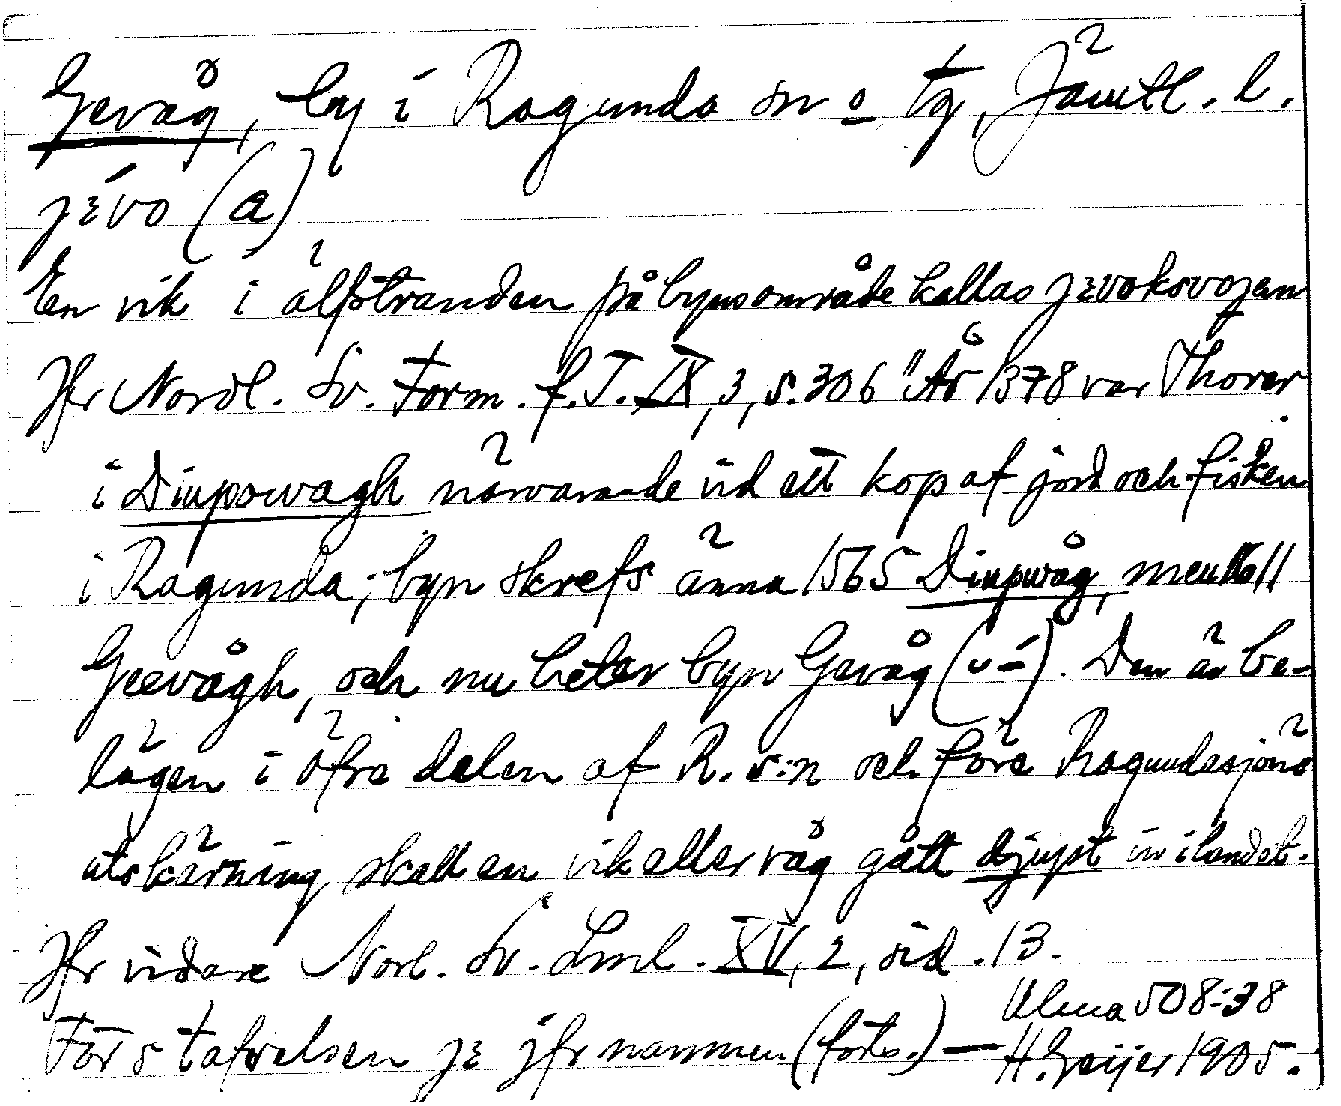 Gevåg, by i Ragunda sn o tg, Jämtl. l.
jɛ́vo (a)
En vik i älfstranden på byns område kallas jɛvoksvojen
Jfr Nordl. Sv. Form. f. T. IX, 3, s. 306 "År 1378 var Thorer
i Diupowagh närvarande vid ett köp af jord och fisken
i Ragunda; byn skrefs änna 1565 Diupwåg, men
Geevågh, och nu heter byn Gevåg (u –́). Den är be-
lägen i öfre delen af R. s:n och före Ragundasjöns
utskärning skall en vik eller våg gått djupt in i landet.
Jfr vidare Norl. Sv. Lml. XV, 2, sid. 13.
För stafvelsen jɛ jfr namnen (forts.) — Ulma 508:38
H. Geijer 1905.